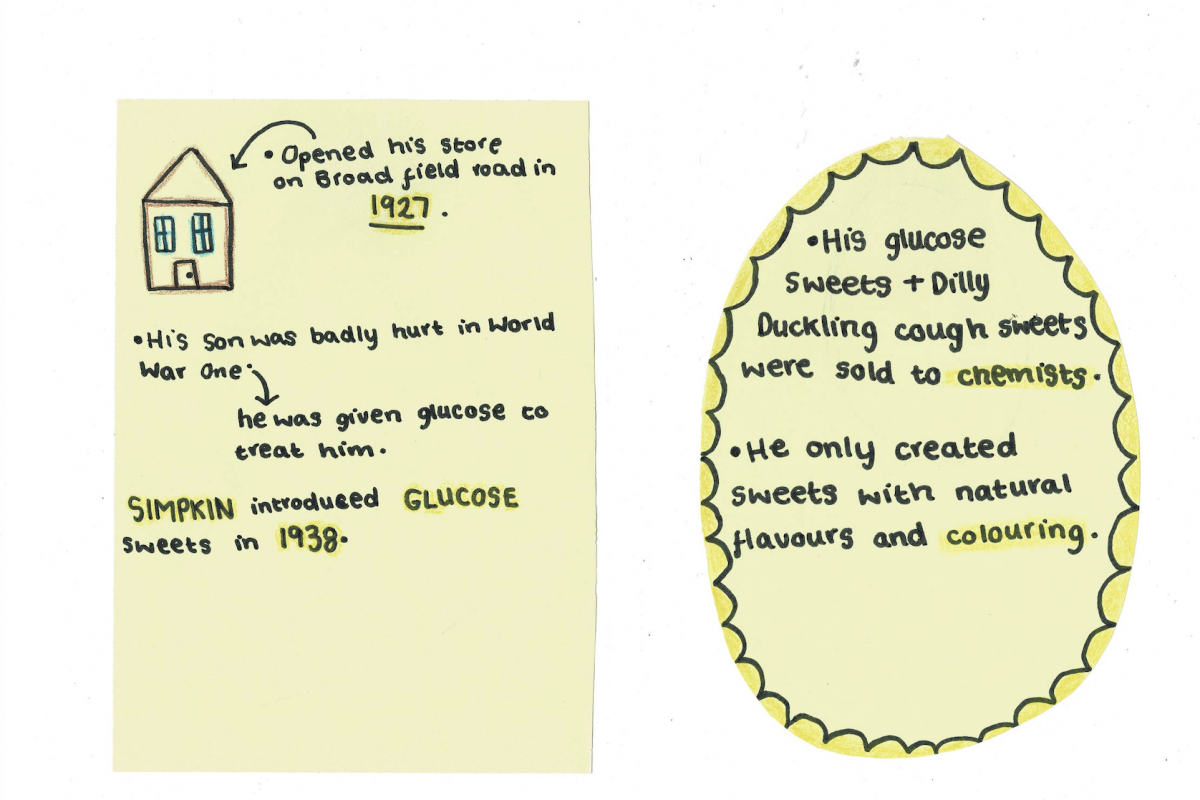 • Opened his store
on Broad field road in
1927.
• His son was badly hurt in World
War One.
he was given glucose to
treat him.
SIMPKIN introduced GLUCOSE
sweets in 1938.
• His glucose
sweets + Dilly
Duckling cough sweets
were sold to chemists.
• He only created
sweets with natural
flavours and colouring.